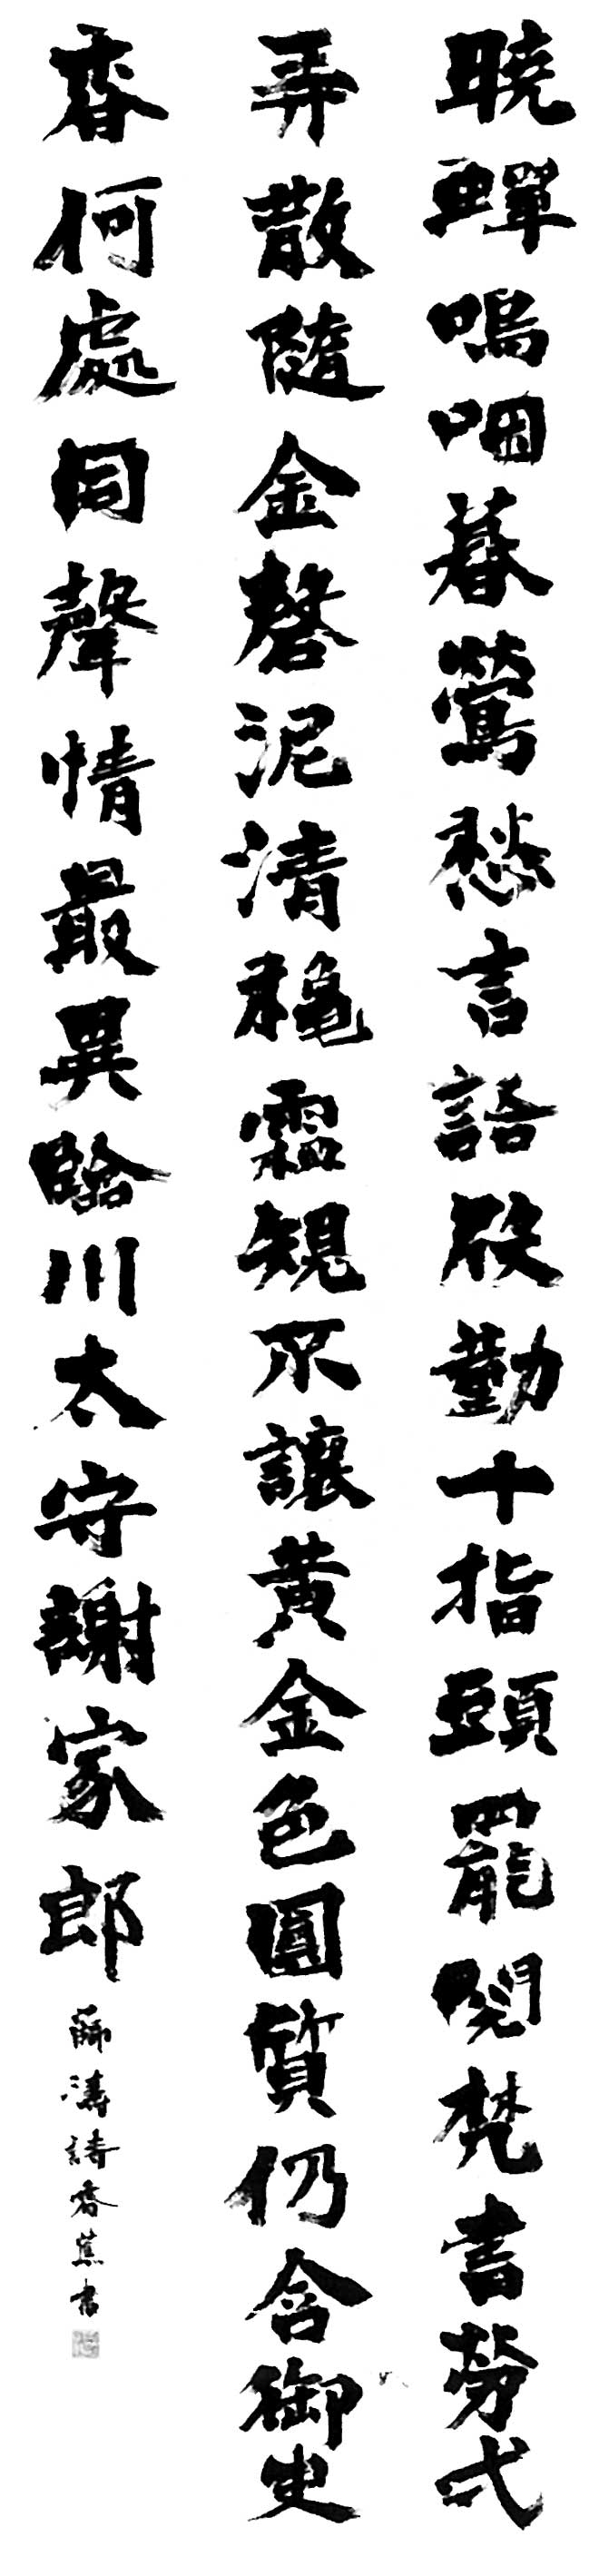 曉蟬嗚咽暮鶯愁言語殷勤十指頭罷閱梵書勞弌
弄散隨金磬泥清穐霜規不讓黃金色圓質仍含御史
香何處同聲情最異臨川太守謝家郎
薛濤詩香蕉書